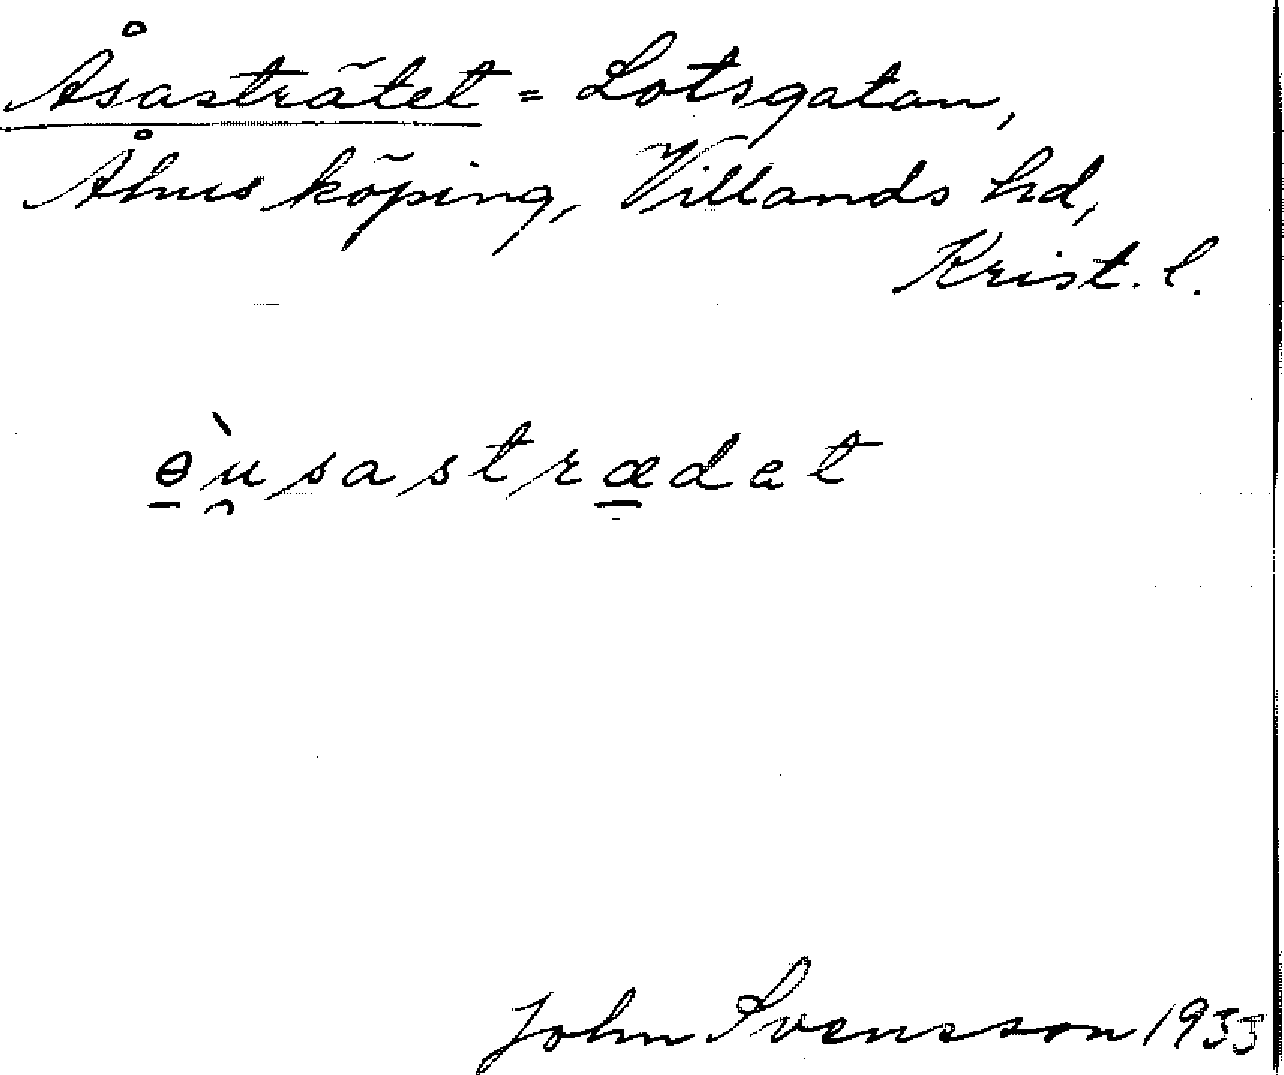 Åsasträtet = Lotsgatan,
Åhus köping, Villands hd,
Krist. l.
ɵ̱̀u̯sastræ̱dət
John Svensson 1933